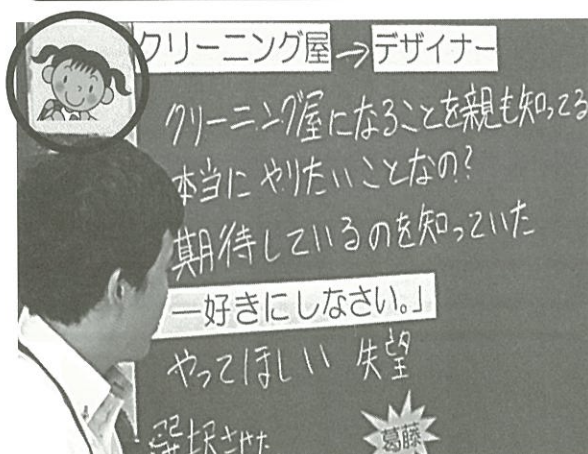 クリーニング屋→デザイナー
クリーニング屋になることを親も知ってる
本当にやりたいことなの?
期待しているのを知っていた
―好きにしなさい。」
やってほしい 失望
選択させた
葛藤